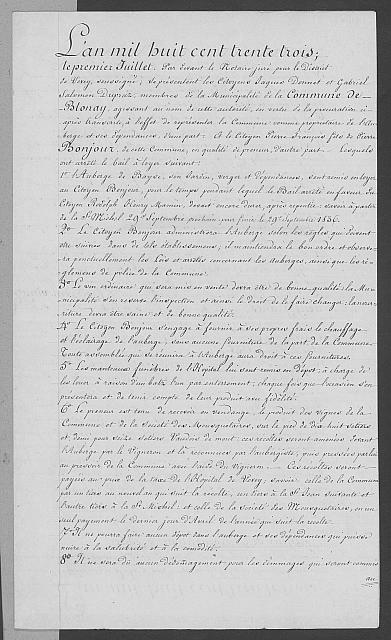 L'an mil huit cent trente trois;
le premier Juillet. Par devant le Notaire juré pour le District
de Vevey, soussigné; se présentent les Citoyens Jaques Donnet et Gabriel
Salomon Dupraz, membres de la Municipalité de la Commune de
Blonay, agissant au nom de cette autorité, en vertu de la procuration ci-
après transcrite, à l'effet de représenter la Commune comme propriétaire de l'Au-
berge et ses dépendances, d'une part. A le Citoyen Pierre François fils de Pierre
Bonjour, de cette Commune, en qualité de preneur, d'autre part. Lesquels
ont arrêté le bail à loyer suivant:
1º l'Auberge de Bayse, son Jardin, verger et dépendances, sont remis en loyer
au Citoyen Bonjour, pour le temps pendant lequel le Bail arrêté en faveur du
Citoyen Rodolph Henry Mamin, devait encore durer, après regentie: savoir à partir
de la St Michel 29e Septembre prochain, pour finir le 29e Septembre 1836.
2º Le Citoyen Bonjour administrera l'Auberge selon les règles qui doivent
être suivies dans de tels établissements; il maintiendra le bon ordre et observe-
ra ponctuellement les Lois et arrêtés concernant les Auberges, ainsi que les ré-
glemens de police de la Commune.
3º Le vin ordinaire qui sera mis en vente devra être de bonne qualité: la Mu-
nicipalité s'en reserve l'inspection et aussi le droit de le faire changer: la nour-
riture devra être saine et de bonne qualité.
4º Le Citoyen Bonjour s'engage à fournir à ses propres frais le chauffage
et l'éclairage de l'auberge, sans aucune fourniture de la part de la Commune.
Toute assemblée qui se réunira à l'Auberge aura droit à ces fournitures.
5º Les manteaux funèbres de l'Hôpital lui sont remis en dépot: à charge de
les louer à raison d'un batz l'un par enterrement, chaque fois que l'occasion s'en
présentera et de tenir compte de leur produit avec fidélité.
6º Le preneur est tenu de recevoir en vendange, le produit des vignes de la
Commune et de la Société des Mousquetaires, sur le pied de dix huit setiers
et demi pour seize setiers Vaudois de mout; ces récoltes seront amenées devant
l'Auberge par le Vigneron et là reconnues par l'aubergiste, puis pressées par lui
au pressoir de la Commune avec l'aide du Vigneron. Ces récoltes seront
payées au prix de la taxe de l'Hôpital de Vevey, savoir: celle de la Commune
par un tiers au nouvel an qui suit la récolte, un tiers à la St Jean suivante et
l'autre tiers à la St Michel: et celle de la Société des Mousquetaires, en un
seul payement le dernier jour d'Avril de l'année qui suit la récolte.
7º Il ne pourra faire aucun dépot dans l'auberge et ses dépendances qui puisse
nuire à la salubrité et à la comodité.
8º Il ne sera dû aucun dédomagement pour les dommages qui seront comm
au